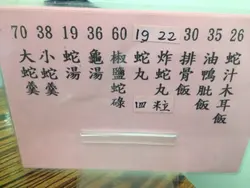 70 38 19 36 60 19 22 30 35 26
大蛇羹
小蛇羹
蛇湯
龜湯
椒鹽蛇碌
蛇丸
炸蛇丸
四粒
排骨飯
油鴨肶飯
蛇汁木耳飯